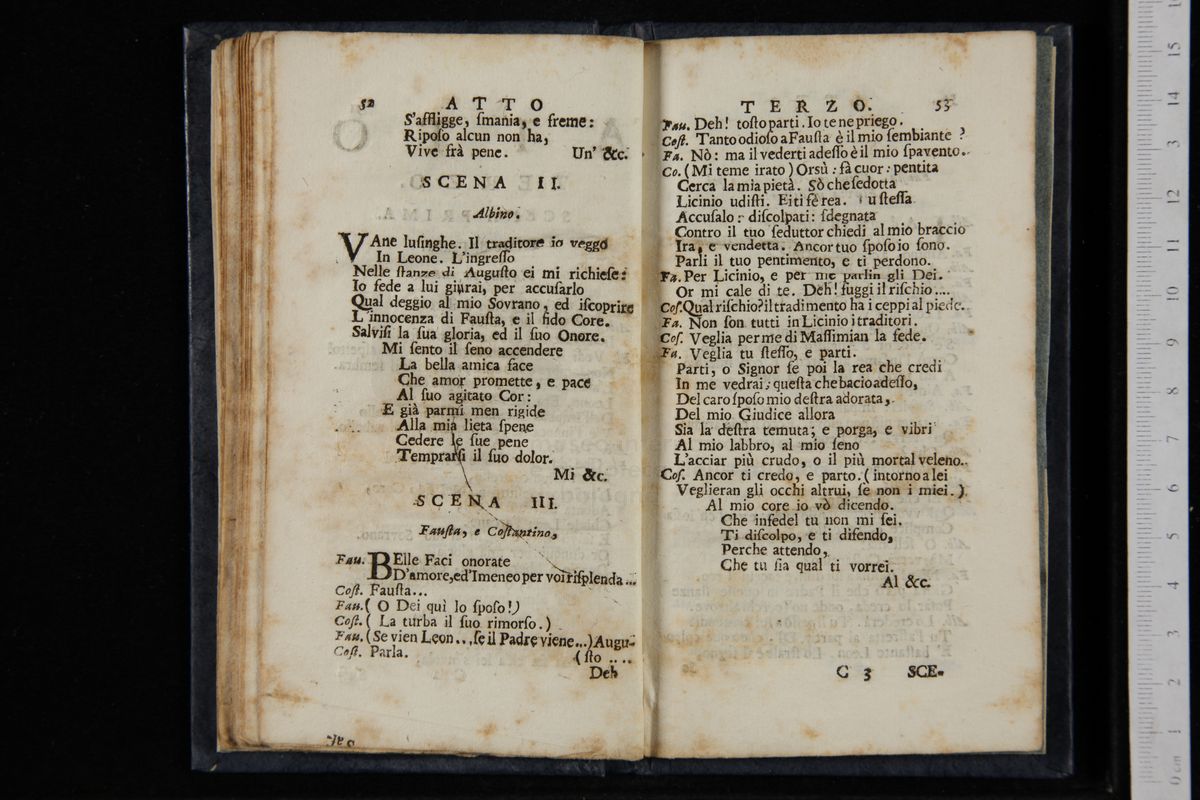 52 ATTO
S'affligge, ſmania, e freme:
Ripoſo alcun non ha,
Vive frà pene. Un' &c.
SCENA II.
Albino.
VAne luſinghe. Il traditore io veggo
In Leone. L'ingreſſo
Nelle ſtanze di Auguſto ei mi richieſe:
Io fede a lui giurai, per accuſarlo
Qual deggio al mio Sovrano, ed iſcoprire
L'innocenza di Fauſta, e il fido Core.
Salviſi la ſua gloria, ed il ſuo Onore.
Mi ſento il ſeno accendere
La bella amica face
Che amor promette, e pace
Al ſuo agitato Cor:
E già parmi men rigide
Alla mia lieta ſpene
Cedere le ſue pene
Temprarſi il ſuo dolor.
Mi &c.
SCENA III.
Fauſta, e Coſtantino,
Fau. BElle Faci onorate
D'amore, ed'Imeneo per voi riſplenda...
Coſt. Fauſta...
Fau. ( O Dei quì lo ſpoſo!)
Coſt. ( La turba il ſuo rimorſo. )
Fau. (Se vien Leon... ſe il Padre viene...) Augu-
Coſt. Parla. (ſto ....
Deh
TERZO. 53
Fau. Deh! toſto parti. Io te ne priego.
Coſt. Tanto odioſo a Fauſta è il mio ſembiante ?
Fa. Nò: ma il vederti adeſſo è il mio ſpavento.
Co. (Mi teme irato) Orsù: fà cuor: pentita
Cerca la mia pietà. Sò che ſedotta
Licinio udiſti. Ei ti fè rea. Tu ſteſſa
Accuſalo: diſcolpati: ſdegnata
Contro il tuo ſeduttor chiedi al mio braccio
Ira, e vendetta. Ancor tuo ſpoſo io ſono.
Parli il tuo pentimento, e ti perdono.
Fa. Per Licinio, e per me parlin gli Dei.
Or mi cale di te. Deh! fuggi il riſchio....
Coſ. Qual riſchio? il tradimento ha i ceppi al piede.
Fa. Non ſon tutti in Licinio i traditori.
Coſ. Veglia per me di Maſſimian la fede.
Fa. Veglia tu ſteſſo, e parti.
Parti, o Signor ſe poi la rea che credi
In me vedrai: queſta che bacio adeſſo,
Del caro ſpoſo mio deſtra adorata,
Del mio Giudice allora
Sia la deſtra temuta; e porga, e vibri
Al mio labbro, al mio ſeno
L'acciar più crudo, o il più mortal veleno.
Coſ. Ancor ti credo, e parto. (intorno a lei
Veglieran gli occhi altrui, ſe non i miei. )
Al mio core io vò dicendo.
Che infedel tu non mi ſei.
Ti diſcolpo, e ti difendo,
Perche attendo,
Che tu ſia qual ti vorrei.
Al &c.
G 3 SCE-